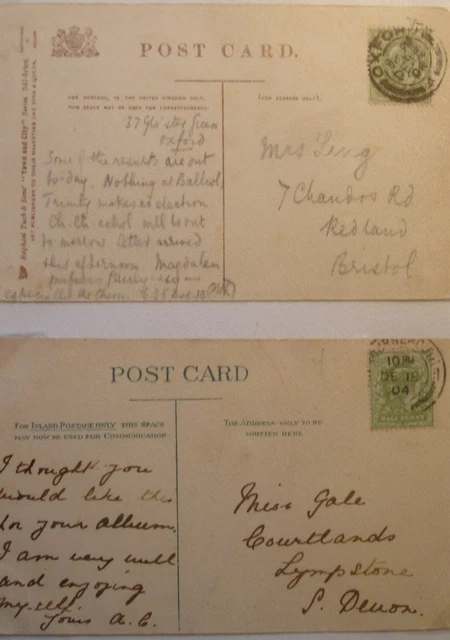 POST CARD.
FOR POSTAGE, IN THE UNITED KINGDOM ONLY,
THIS SPACE MAY BE USED FOR CORRESPONDENCE.
(FOR ADDRESS ONLY).
Raphael Tuck & Sons' "Town and City" Series
ART PUBLISHERS TO THEIR MAJESTIES THE KING & QUEEN.
OXFORD
Oxford
Some of the results are out
to-day. Nothing at Balliol,
Trinity makes no election
Ch. Ch. schol will be out
to morrow. Letter arrived
this afternoon. Magdalen
Mrs
7 Chandos Rd
Redland
Bristol
POST CARD
FOR INLAND POSTAGE ONLY THIS SPACE
MAY NOW BE USED FOR COMMUNICATION.
THE ADDRESS ONLY TO BE
WRITTEN HERE
10 PM
DE 18
04
I thought you
would like this
for your album.
I am very well
and enjoying
myself.
Yours A.C.
Miss Gale
Courtlands
Lympstone
S. Devon.